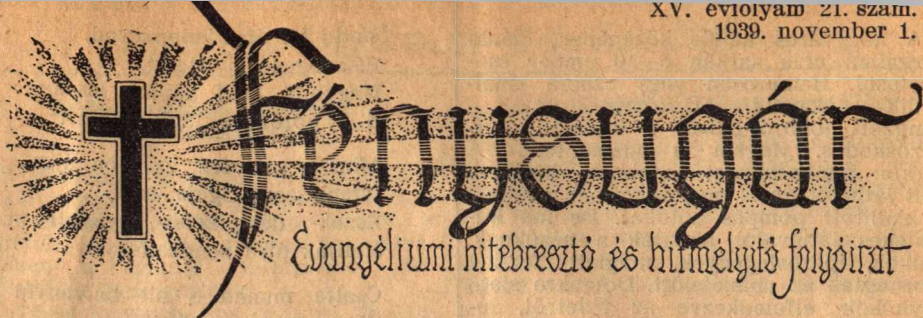 XV. évfolyam 21. szám.
1939. november 1.
Fénysugár
Evangéliumi hitébresztő és hitmélyítő folyóirat